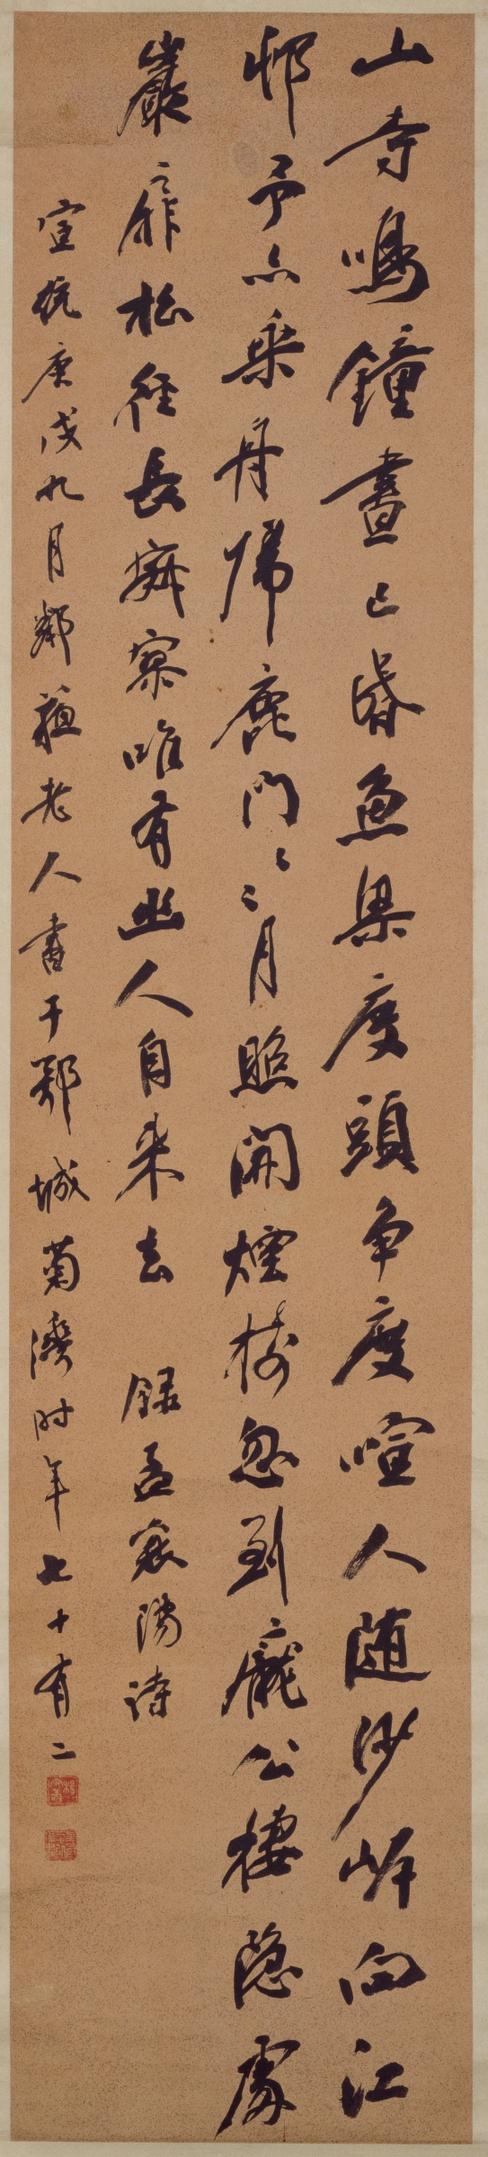 山寺鳴鐘晝已昏魚梁度頭争度喧人随沙岸向江
邨予亦乘舟歸鹿門〻〻月照開煙樹忽到龐公棲隱處
巖扉松徑長寂寞唯有幽人自来去　録孟襄陽詩
宣統庚戌九月鄰蘇老人書于鄂城菊灣時年七十有二